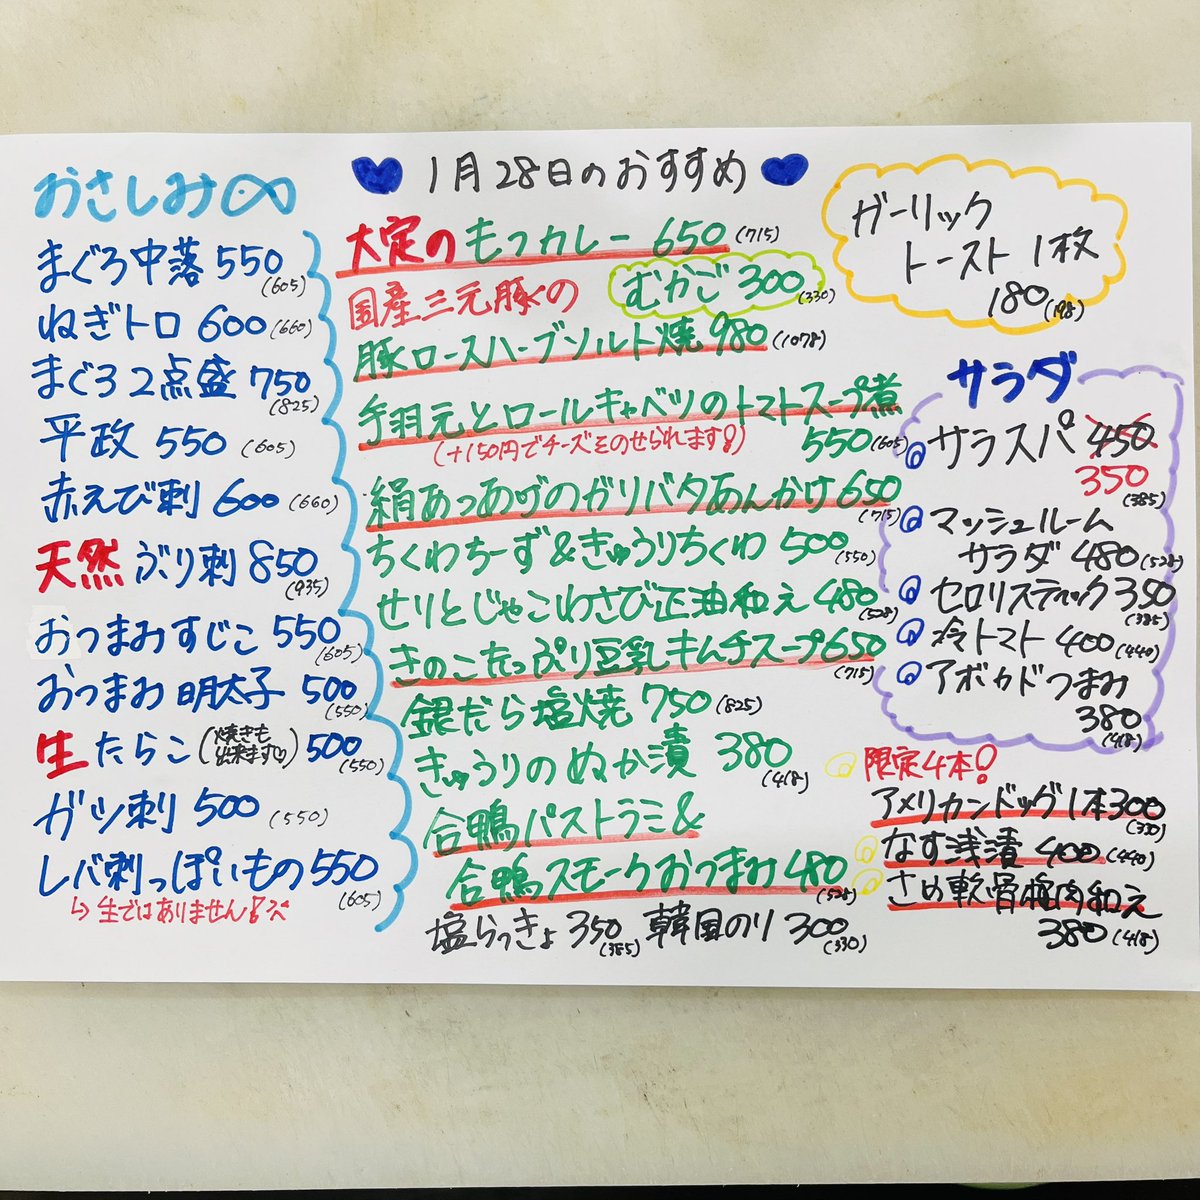 1月28日のおすすめ
おさしみ
まぐろ中落 550
(605)
ねぎトロ 600 (660)
まぐろ2点盛 750
(825)
平政 550 (605)
赤えび刺 600 (660)
天然 ぶり刺 850
(935)
おつまみすじこ 550
(605)
おつまみ明太子 500
(550)
生たらこ (焼きも
出来ます♡) 500
(550)
ガツ刺 500 (550)
レバ刺っぽいもの 550
(605)
↳生ではありません!
大定のもつカレー 650 (715)
むかご 300 (330)
国産三元豚の
豚ロースハーブソルト焼 980 (1078)
手羽元とロールキャベツのトマトスープ煮
(+150円でチーズをのせられます!) 550 (605)
絹あつあげのガリバタあんかけ 650
(715)
ちくわちーず&きゅうりちくわ 500 (550)
せりとじゃこわさび正油和え 480 (528)
きのこたっぷり豆乳キムチスープ 650
(715)
銀だら塩焼 750 (825)
きゅうりのぬか漬 380
(418)
合鴨パストラミ&
合鴨スモークおつまみ 480
(528)
塩らっきょ 350 (385) 韓国のり 300 (330)
ガーリック
トースト 1枚
180 (198)
サラダ
サラスパ 450
350
(385)
マッシュルーム
サラダ 480 (528)
セロリスティック 350
(385)
冷トマト 400 (440)
アボカドつまみ
380
(418)
限定4本!
アメリカンドッグ1本 300
(330)
なす浅漬 400 (440)
さめ軟骨梅肉和え
380 (418)